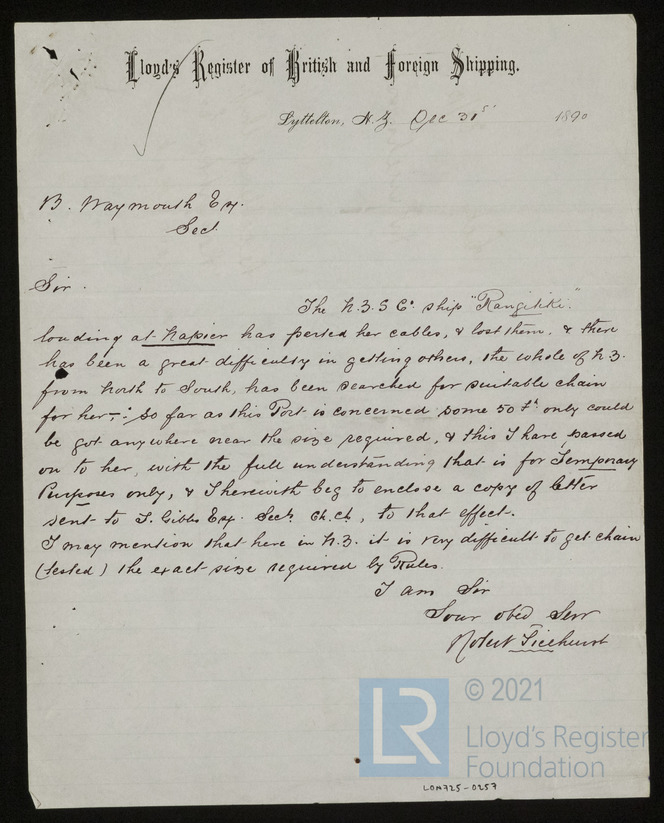 Lloyd's Register of British and Foreign Shipping.
Lyttelton, N.Z. Dec 31st 1890
B. Waymouth Esq.
Sect.
Sir.
The N.Z.S Co. ship "Rangitiki".
loading at Napier has parted her cables, & lost them, & there
has been a great difficulty in getting others, the whole of N.Z.
from North to South, has been searched for suitable chain
for her,- So far as this Port is concerned some 50 fm only could
be got anywhere near the size required, & this I have passed
on to her, with the full understanding that is for Temporary
Purposes only, & I herewith beg to enclose a copy of letter
sent to I. Gibbs Esq. Secty. Ch.Ch., to that effect.
I may mention that here in N.Z. it is very difficult to get chain
(tested) the exact size required by Rules.
I am Sir
Your obed Serv
Robert Ticehurst
LR © 2021
Lloyd's Register
Foundation
LON725-0257